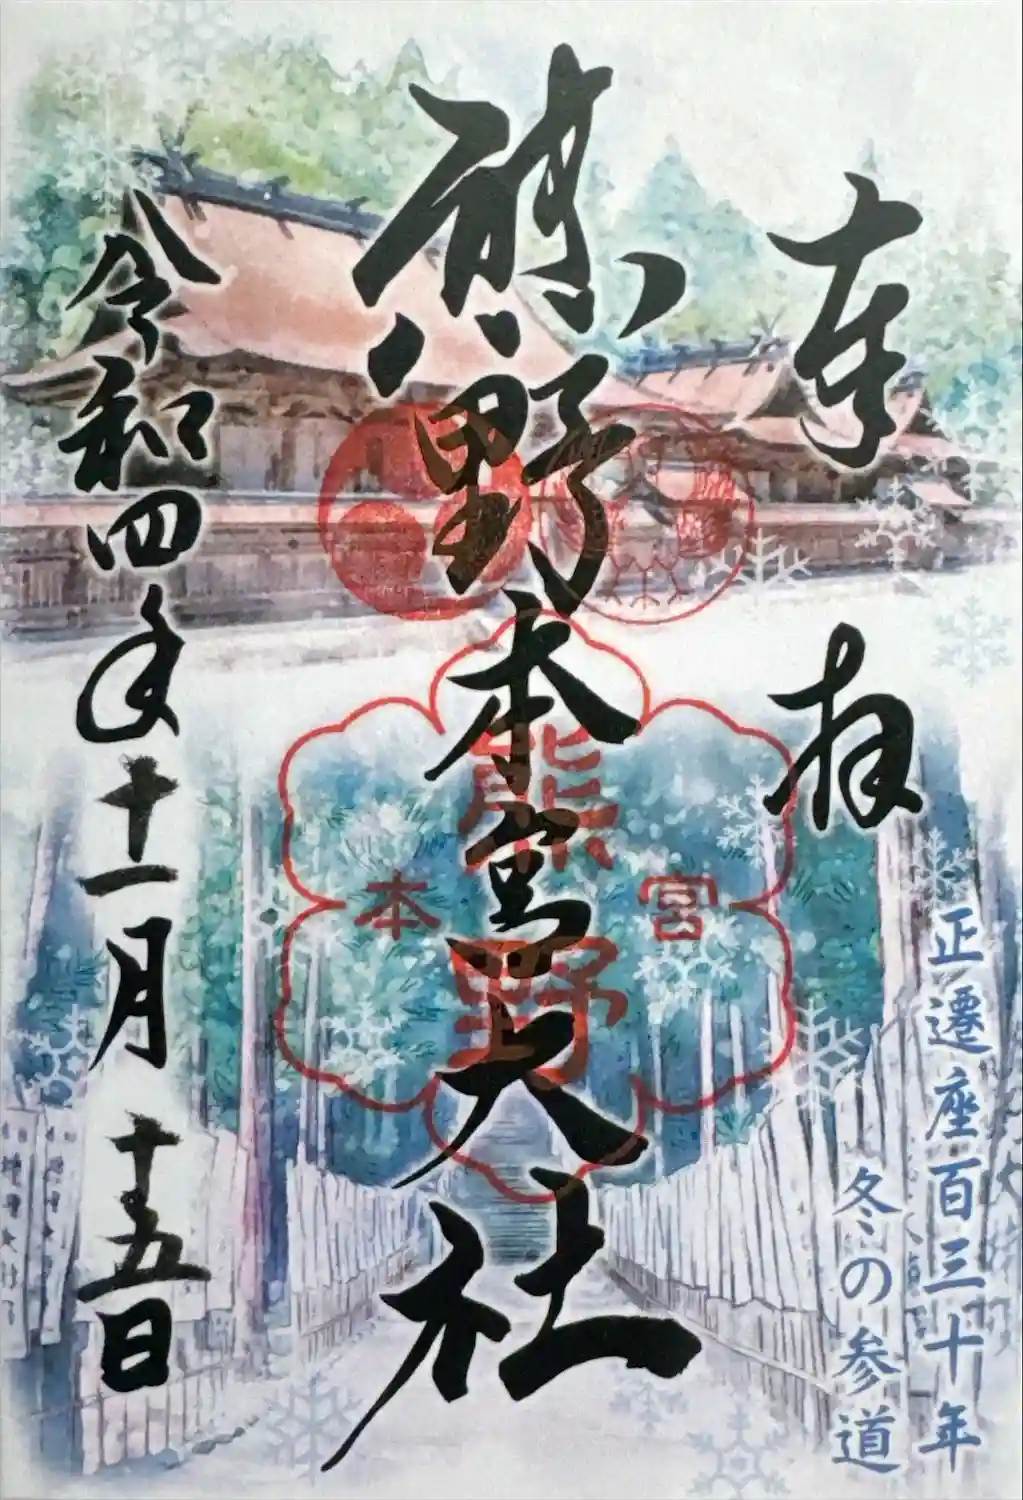 奉拝
熊野本宮大社
令和四年十一月十五日
熊野
本宮
正遷座百三十年
冬の参道